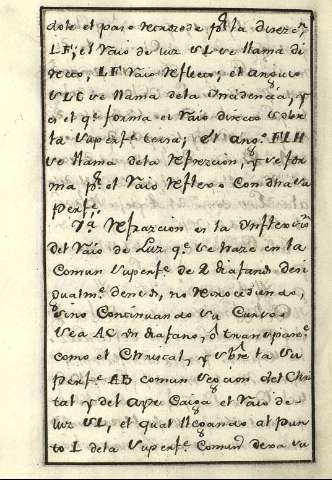 dole el paso retrozede pr la direzn,
LF, el Raio de luz SL se llama di
recto, LF Raio reflecto; el angulo
SLC se llama dela Incidencia, y
es el qe forma el Raio directo sobre
la superfe tersa; el ango FLH
se llama dela refrezcion, y se for
ma pr el Raio reflexo con dha su
perfe.
Ya Refrazcion es la Inflexion
del Raio de Luz qe se haze en la
comun superfe de 2 diafanos desi
gualmte densos, no retrocediendo,
sino continuando su Curso.
Sea AC un diafano, ô transparte
como el Christal, y sobre la su
perfe AB comun seczion del Chris
tal y del ayre Caiga el Raio de
luz SL, el qual llegando al pun
to L dela superfe Comun dexa su